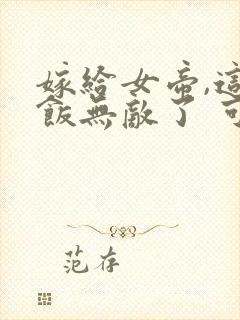 嫁給女帝,這
飯無敵了 可
范存